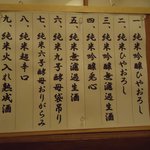 一、純米ひやおろし
二、純米吟醸ひやおろし
三、純米吟醸無濾過生酒
四、純米吟醸亀心
五、純米無濾過生酒
六、純米九子酵母袋吊り
七、純米六子酵母おりがらみ
八、純米超辛口
九、純米火入れ熟成酒